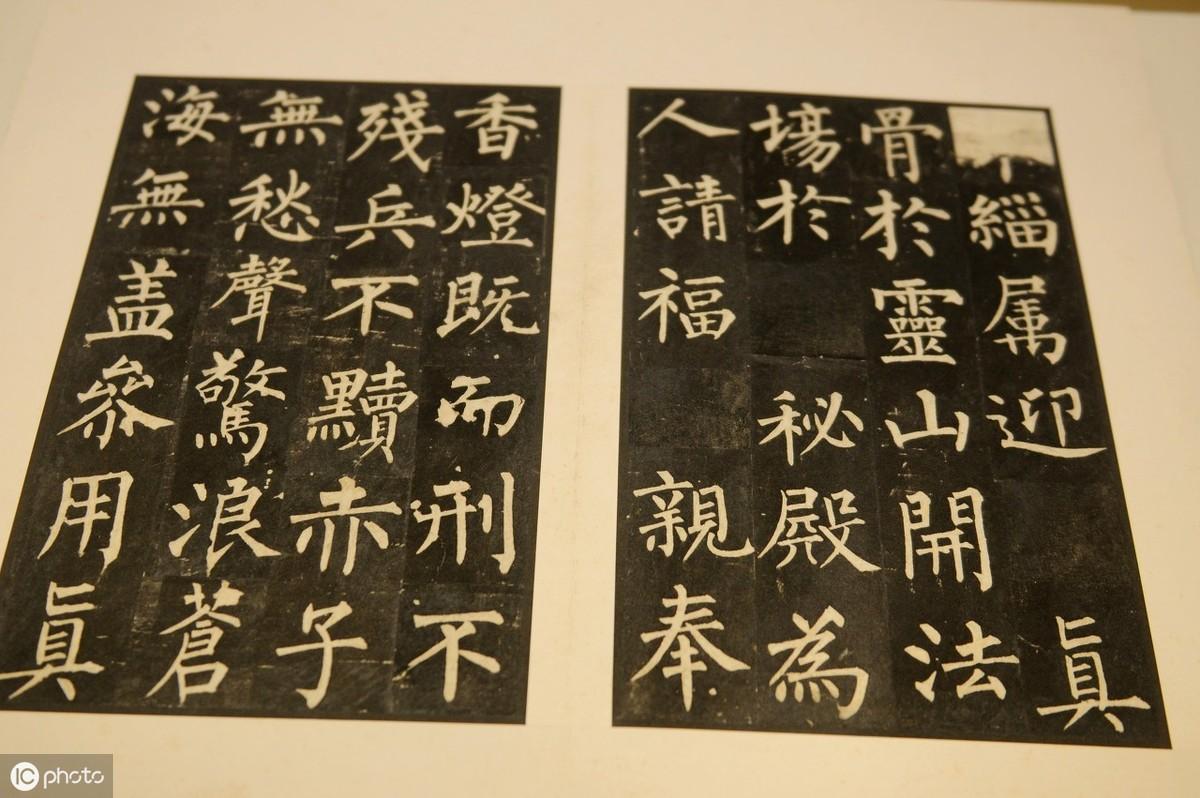 緇属迎 眞
骨於靈山開法
場於 秘殿為
人請福 親奉
香燈既而刑不
殘兵不黷赤子
無愁聲驚浪蒼
海無盖㕘用眞
IC photo